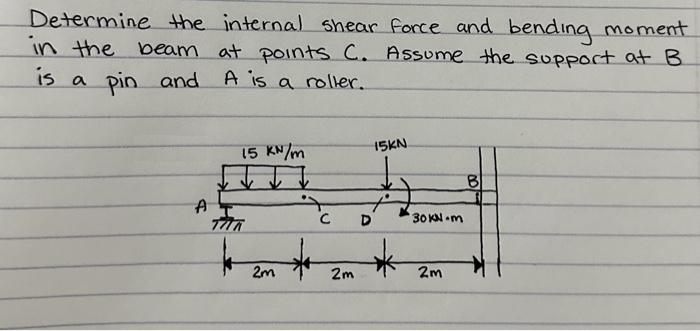 Determine the internal shear force and bending moment
in the beam at points C. Assume the support at B
is a pin and A is a roller.
15 KN/m
15KN
B
A
C
D
30KN•m
2m
2m
2m